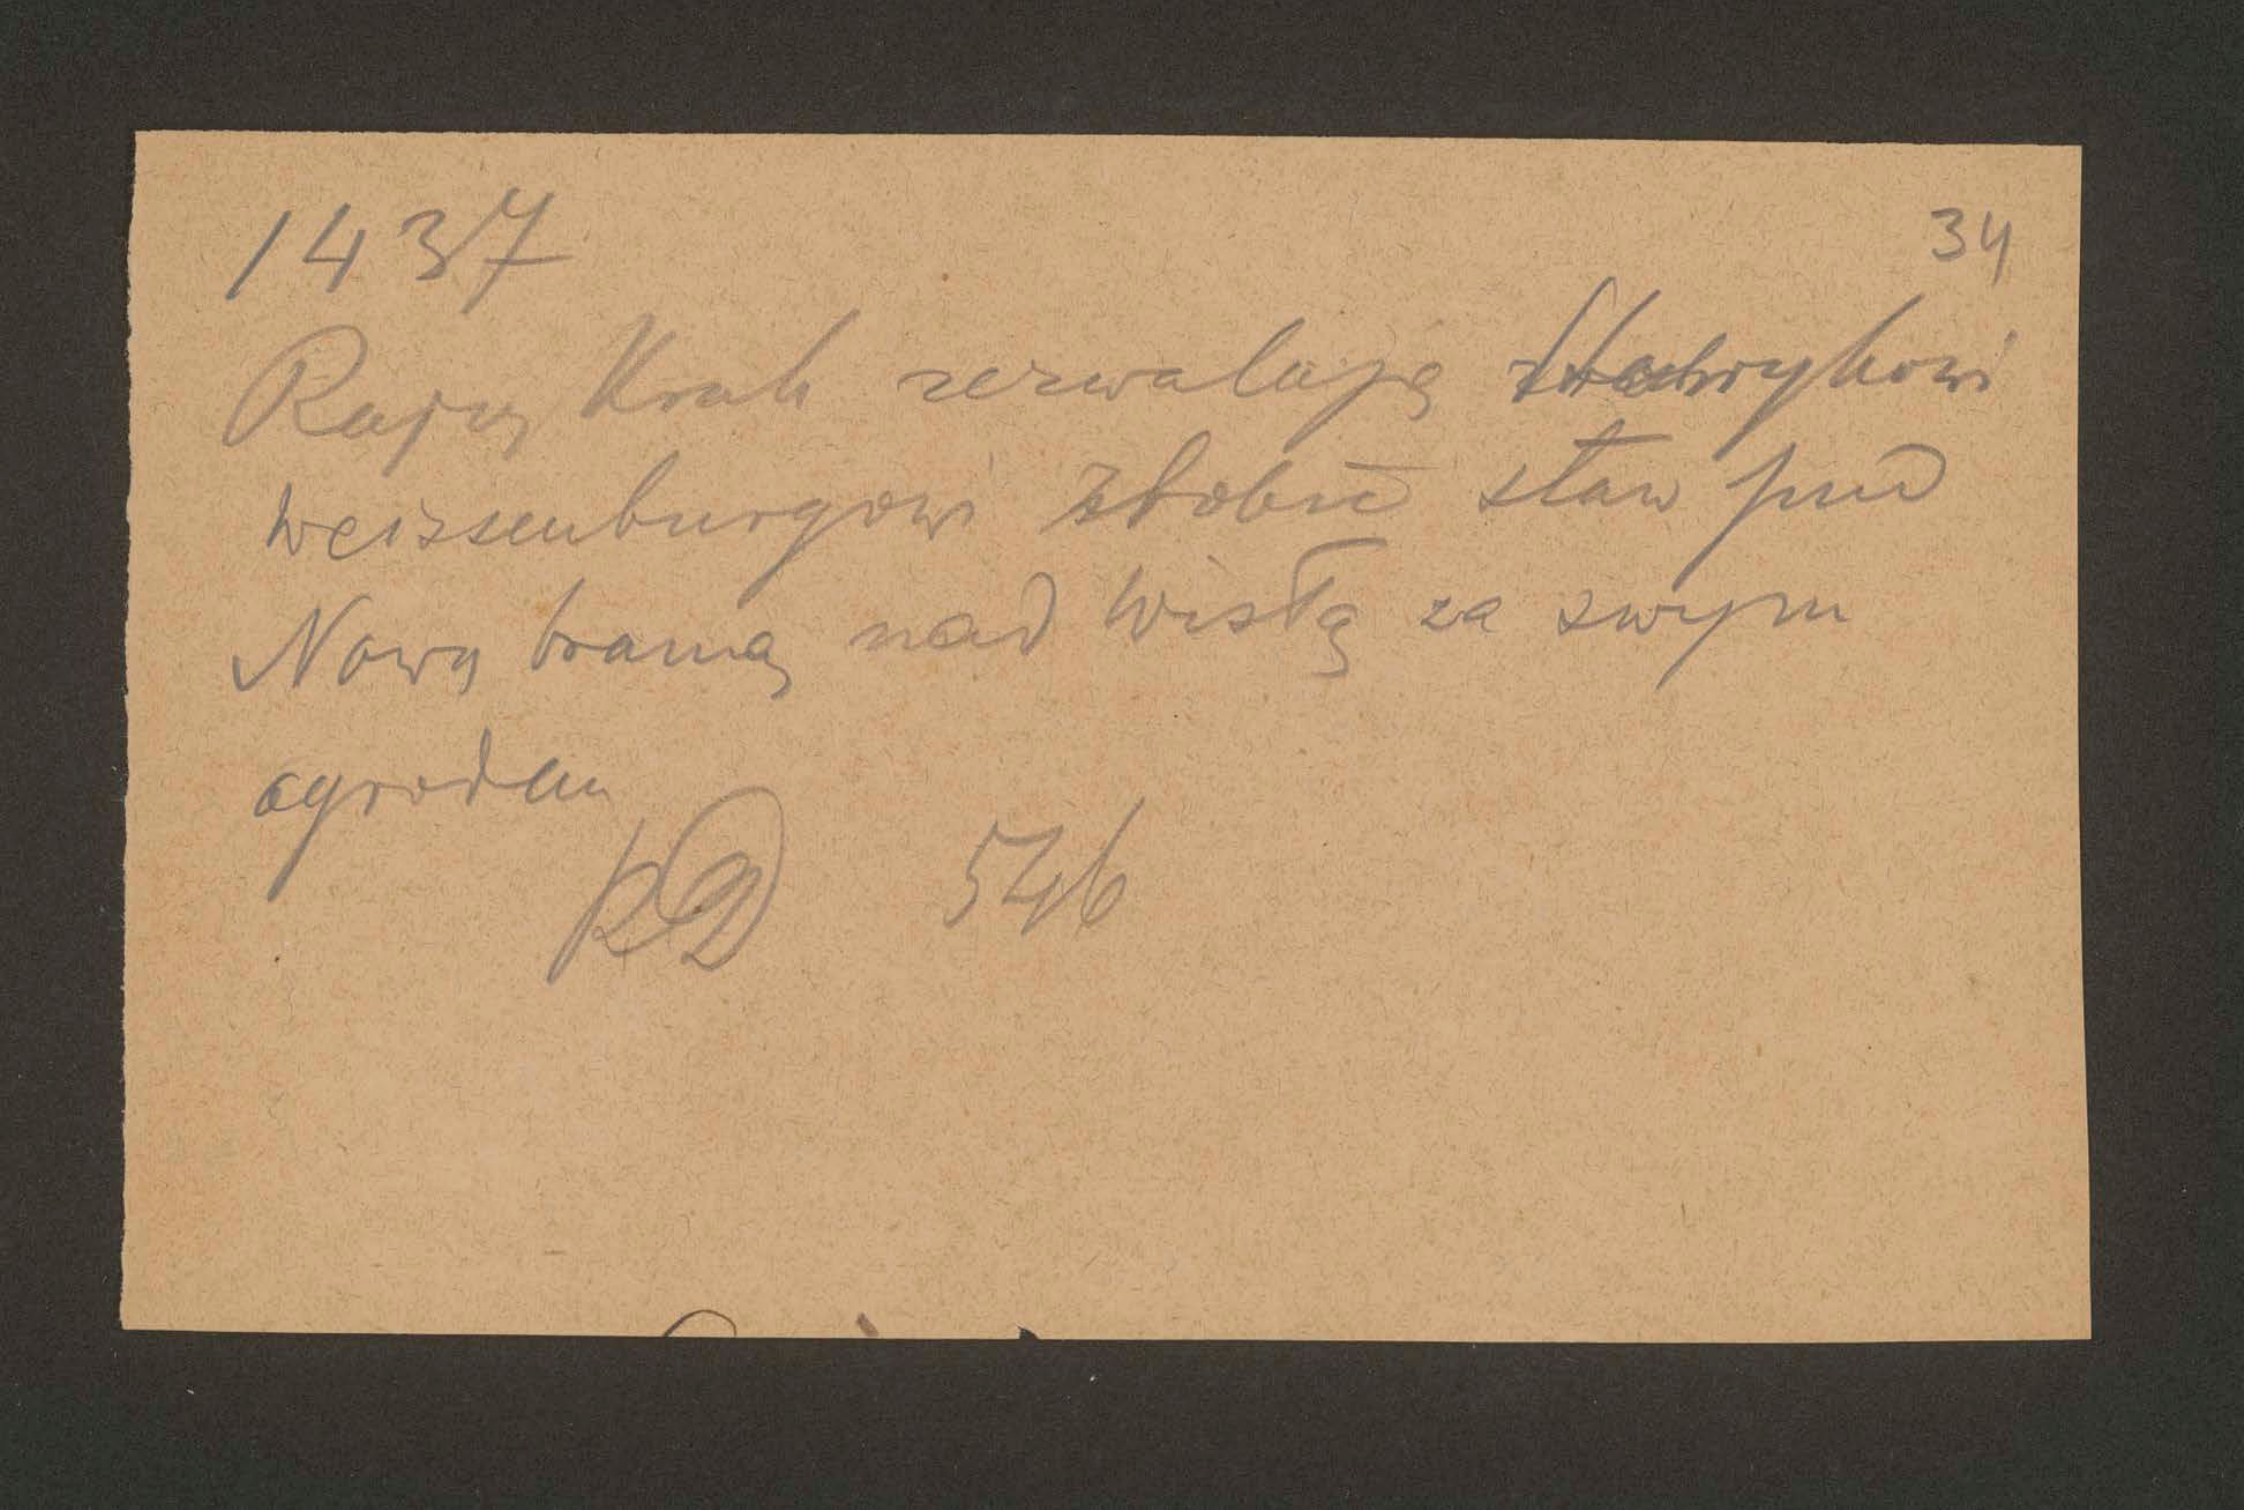 1437
34
Rajcy Krak zezwalają Henrykowi
Weissenburgowi zrobić staw pod
Nową bramą nad Wisłą za swym
ogrodem
KD 546